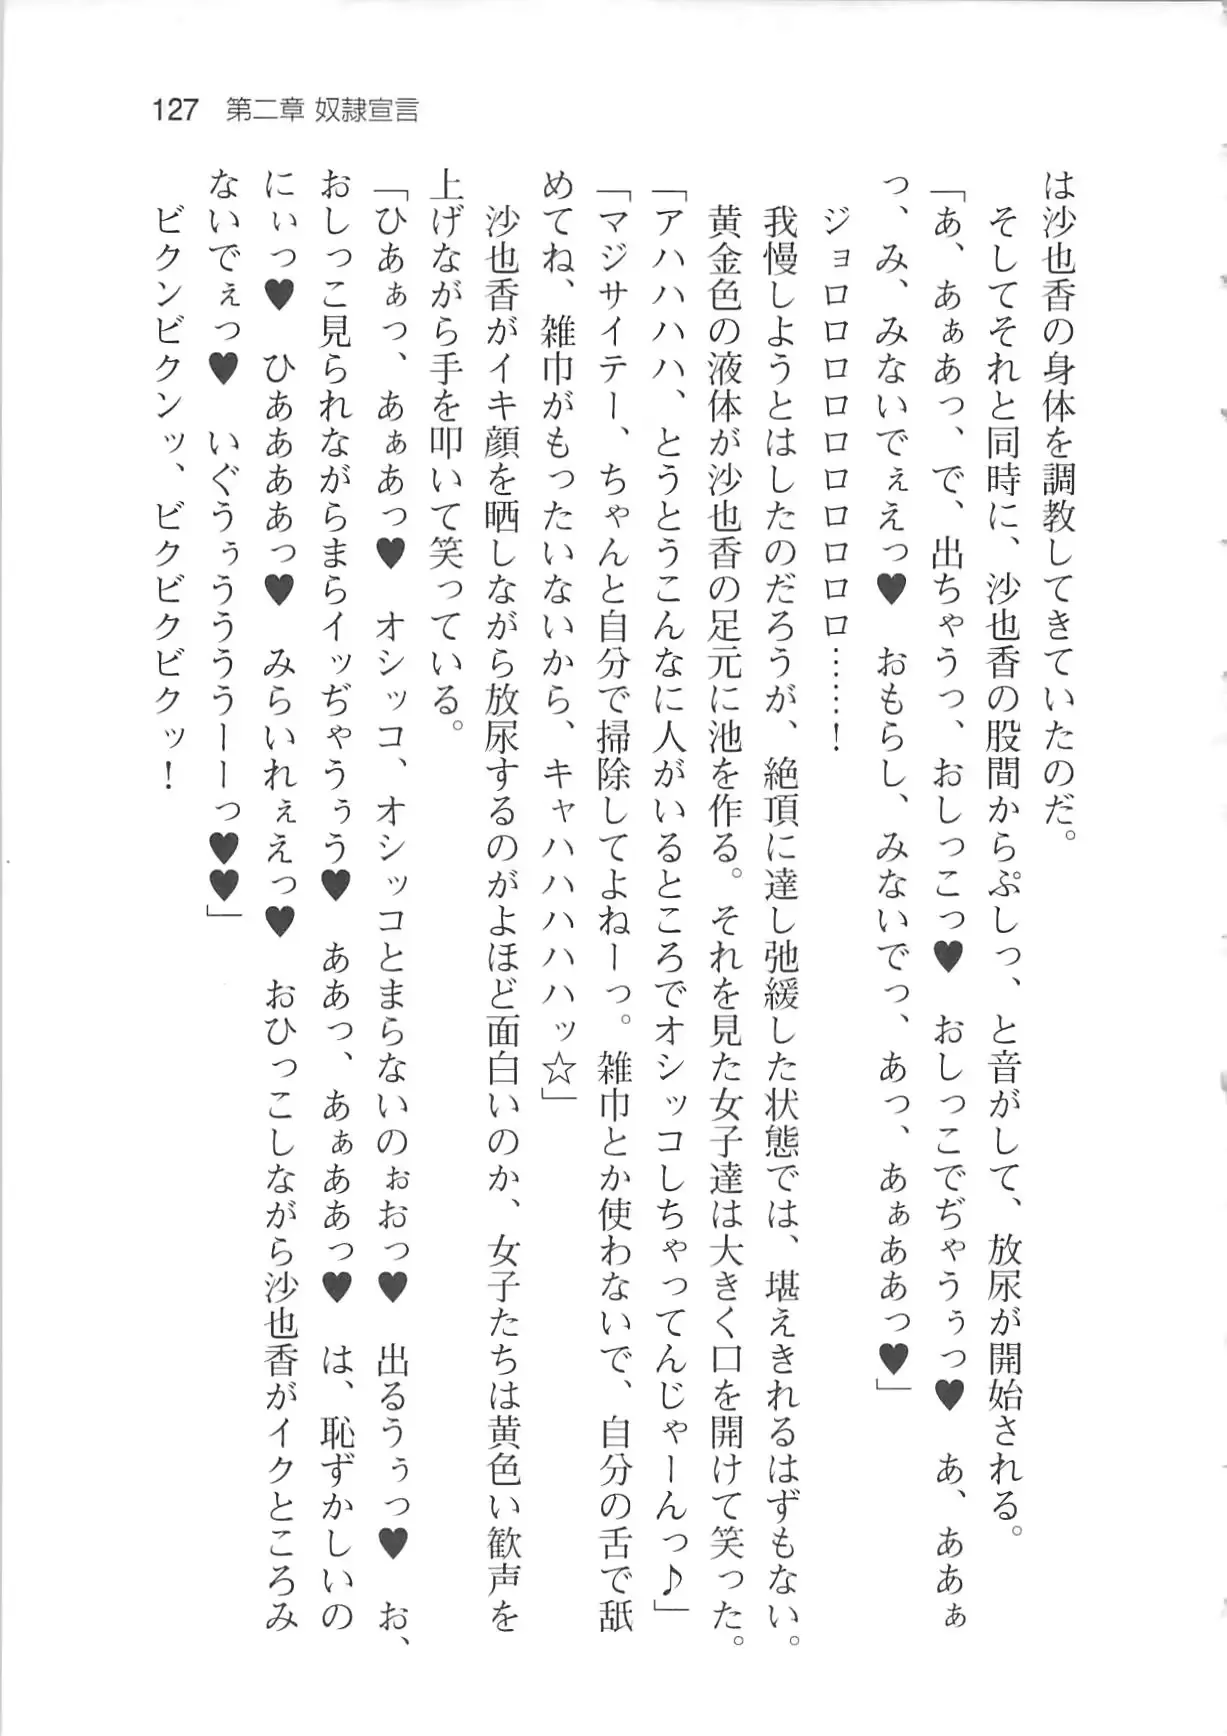 127 第二章 奴隷宣言
は沙也香の身体を調教してきていたのだ。
そしてそれと同時に、沙也香の股間からぷしっ、と音がして、放尿が開始される。
「あ、あぁあっ、で、出ちゃうっ、おしっこっ♥ おしっこでぢゃうぅっ♥ あ、ああぁ
っ、み、みないでぇえっ♥ おもらし、みないでっ、あっ、あぁああっ♥」
ジョロロロロロロロロロ……！
我慢しようとはしたのだろうが、絶頂に達し弛緩した状態では、堪えきれるはずもない。
黄金色の液体が沙也香の足元に池を作る。それを見た女子達は大きく口を開けて笑った。
「アハハハハ、とうとうこんなに人がいるところでオシッコしちゃってんじゃーんっ♪」
「マジサイテー、ちゃんと自分で掃除してよねーっ。雑巾とか使わないで、自分の舌で舐
めてね、雑巾がもったいないから、キャハハハハハッ☆」
沙也香がイキ顔を晒しながら放尿するのがよほど面白いのか、女子たちは黄色い歓声を
上げながら手を叩いて笑っている。
「ひあぁっ、あぁあっ♥ オシッコ、オシッコとまらないのぉおっ♥ 出るうぅっ♥ お、
おしっこ見られながらまらイッぢゃうぅう♥ ああっ、あぁああっ♥ は、恥ずかしいの
にぃっ♥ ひああああっ♥ みらいれぇえっ♥ おひっこしながら沙也香がイクところみ
ないでぇっ♥ いぐうぅうううーーっ♥♥」
ビクンビクンッ、ビクビクビクッ！